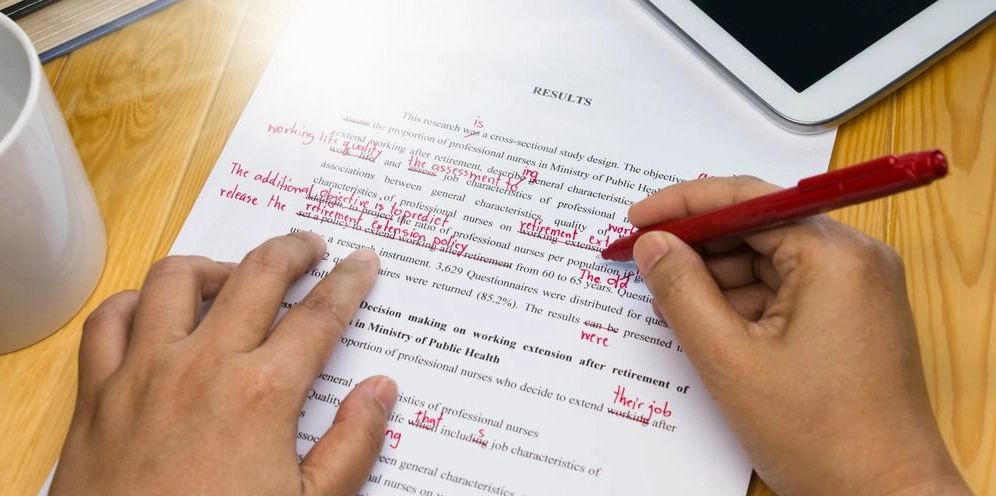 RESULTS
is
This research was a cross-sectional study design. The objective
the proportion of professional nurses in Ministry of Public Health
working life quality
extend working after retirement, describe general characteristics
the assessment to
ing
work life and assess job characteristics of professional
associations between general characteristics, quality of work
The additional objective is to predict
characteristics, of professional nurses on working extension
retirement ext
release the retirement extension policy
to project the ratio of professional nurses per population
The old
set a policy to extend working after retirement from 60 to 65 years. Questio
a research instrument. 3,629 Questionnaires were distributed for
aires were returned (85.2%). The results can be presented
were
Decision making on working extension after retirement of
in Ministry of Public Health
oportion of professional nurses who decide to extend working after
their job
eneral
istics of professional nurses
Quality
ife which including job characteristics of
that
s
ng
een general characteristics
nal nurses on